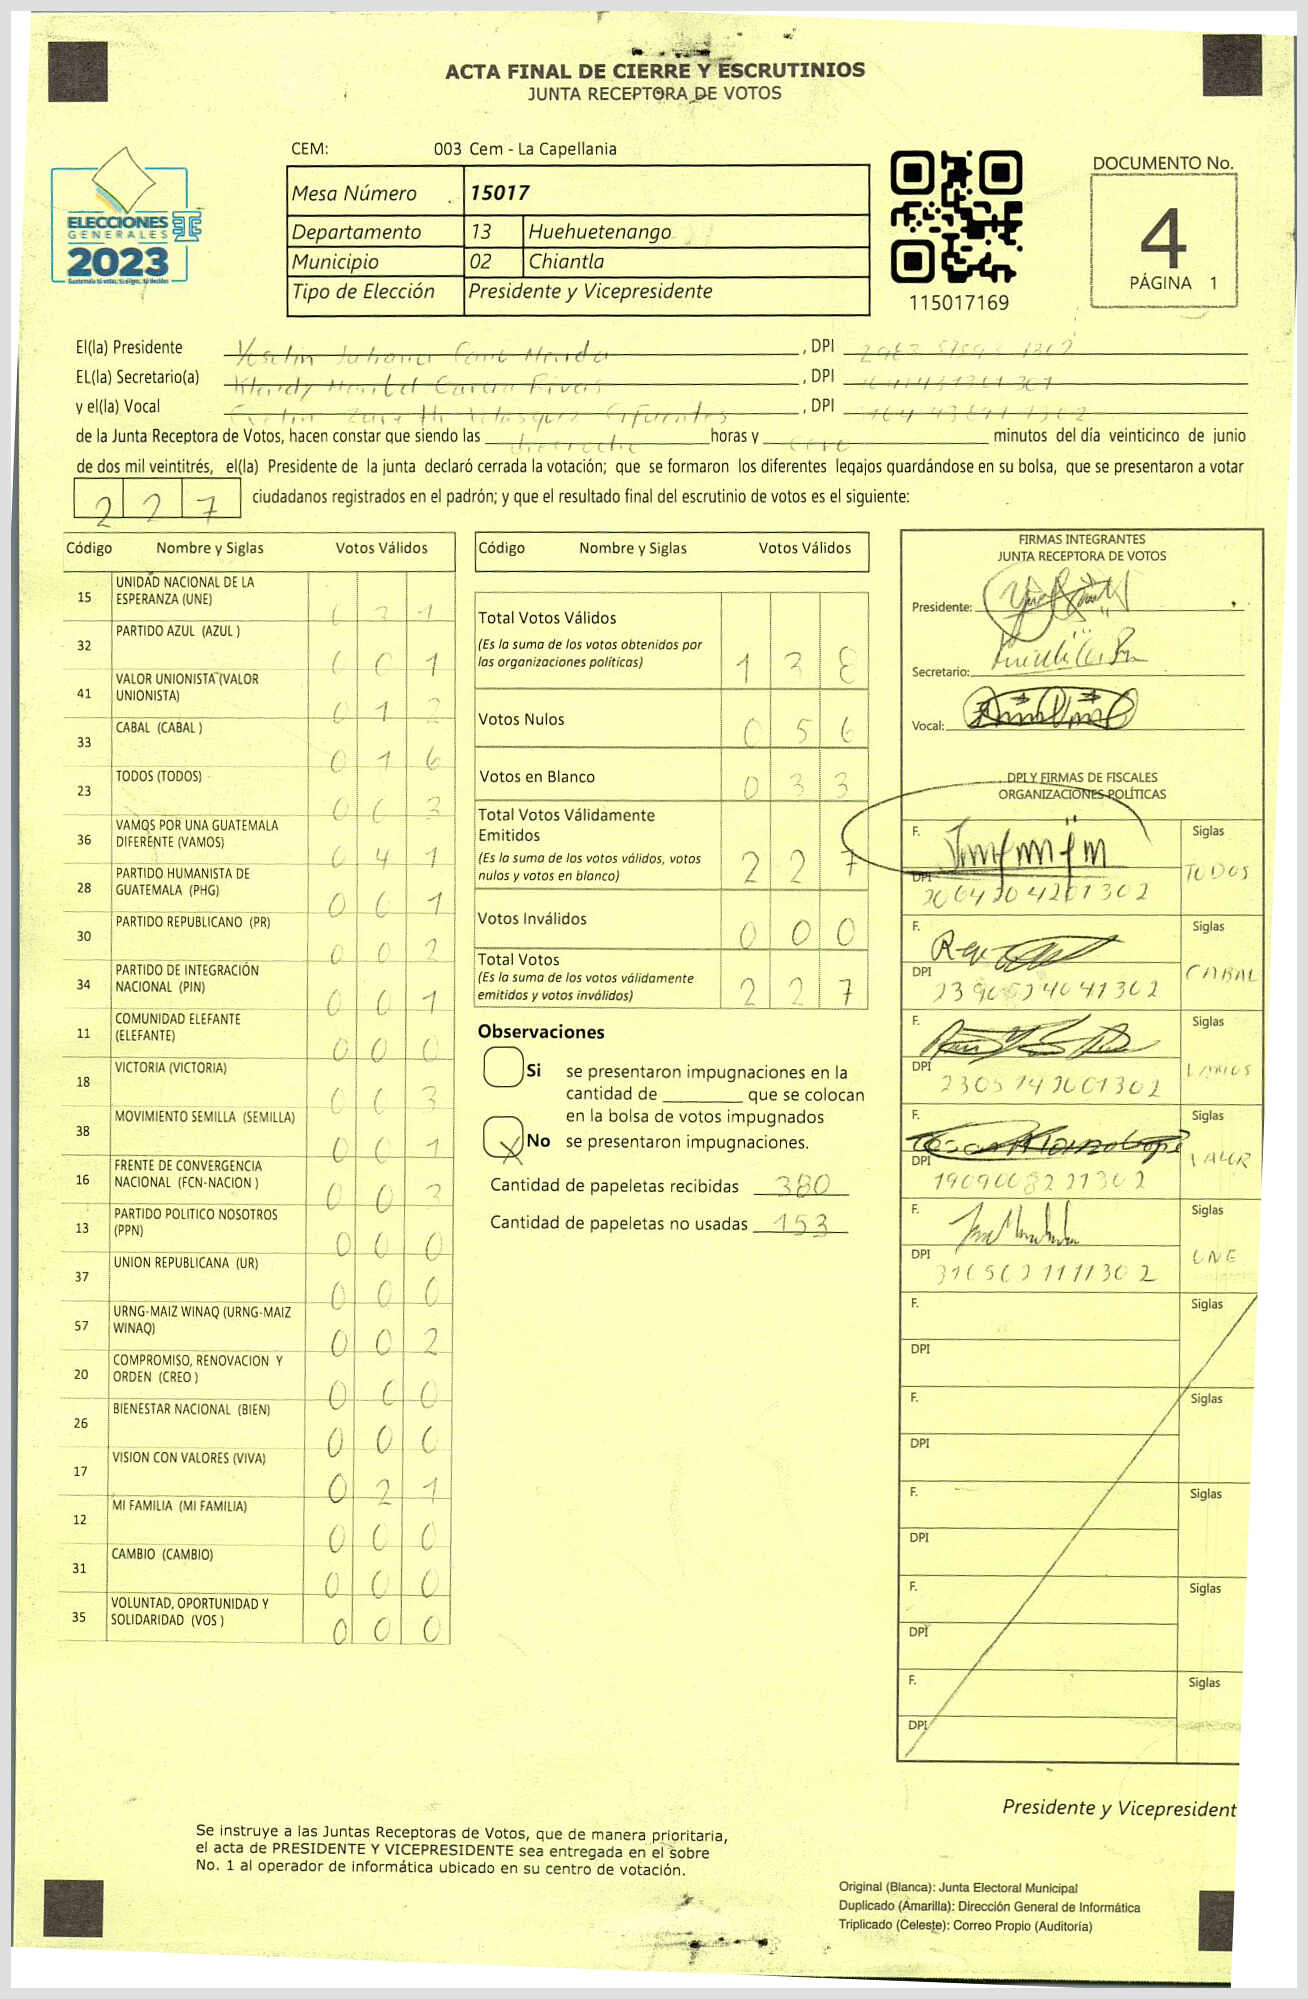 ACTA FINAL DE CIERRE Y ESCRUTINIOS
JUNTA RECEPTORA DE VOTOS
CEM: 003 Cem - La Capellania
ELECCIONES
GENERALES
2023
Mesa Número 15017
Departamento 13 Huehuetenango
Municipio 02 Chiantla
Tipo de Elección Presidente y Vicepresidente
115017169
DOCUMENTO No.
4
PÁGINA 1
El(la) Presidente , DPI
EL(la) Secretario(a) , DPI
y el(la) Vocal , DPI
de la Junta Receptora de Votos, hacen constar que siendo las dieciocho horas y cero minutos del día veinticinco de junio
de dos mil veintitrés, el(la) Presidente de la junta declaró cerrada la votación; que se formaron los diferentes legajos guardándose en su bolsa, que se presentaron a votar
2 2 7 ciudadanos registrados en el padrón; y que el resultado final del escrutinio de votos es el siguiente:
Código Nombre y Siglas Votos Válidos
15 UNIDAD NACIONAL DE LA ESPERANZA (UNE) 0 3 1
32 PARTIDO AZUL (AZUL ) 0 0 1
41 VALOR UNIONISTA (VALOR UNIONISTA) 0 1 2
33 CABAL (CABAL ) 0 1 6
23 TODOS (TODOS) 0 0 3
36 VAMOS POR UNA GUATEMALA DIFERENTE (VAMOS) 0 4 1
28 PARTIDO HUMANISTA DE GUATEMALA (PHG) 0 0 1
30 PARTIDO REPUBLICANO (PR) 0 0 2
34 PARTIDO DE INTEGRACIÓN NACIONAL (PIN) 0 0 1
11 COMUNIDAD ELEFANTE (ELEFANTE) 0 0 0
18 VICTORIA (VICTORIA) 0 0 3
38 MOVIMIENTO SEMILLA (SEMILLA) 0 0 1
16 FRENTE DE CONVERGENCIA NACIONAL (FCN-NACION ) 0 0 3
13 PARTIDO POLITICO NOSOTROS (PPN) 0 0 0
37 UNION REPUBLICANA (UR) 0 0 0
57 URNG-MAIZ WINAQ (URNG-MAIZ WINAQ) 0 0 2
20 COMPROMISO, RENOVACION Y ORDEN (CREO ) 0 0 0
26 BIENESTAR NACIONAL (BIEN) 0 0 0
17 VISION CON VALORES (VIVA) 0 2 1
12 MI FAMILIA (MI FAMILIA) 0 0 0
31 CAMBIO (CAMBIO) 0 0 0
35 VOLUNTAD, OPORTUNIDAD Y SOLIDARIDAD (VOS ) 0 0 0
Código Nombre y Siglas Votos Válidos
Total Votos Válidos
(Es la suma de los votos obtenidos por
las organizaciones políticas) 1 3 8
Votos Nulos 0 5 6
Votos en Blanco 0 3 3
Total Votos Válidamente
Emitidos
(Es la suma de los votos válidos, votos
nulos y votos en blanco) 2 2 7
Votos Inválidos 0 0 0
Total Votos
(Es la suma de los votos válidamente
emitidos y votos inválidos) 2 2 7
Observaciones
Si se presentaron impugnaciones en la
cantidad de ________ que se colocan
en la bolsa de votos impugnados
X No se presentaron impugnaciones.
Cantidad de papeletas recibidas 380
Cantidad de papeletas no usadas 153
FIRMAS INTEGRANTES
JUNTA RECEPTORA DE VOTOS
Presidente:
Secretario:
Vocal:
DPI Y FIRMAS DE FISCALES
ORGANIZACIONES POLÍTICAS
F. Siglas
DPI TODOS
F. Siglas
DPI CABAL
F. Siglas
DPI VAMOS
F. Siglas
DPI VALOR
F. Siglas
DPI UNE
F. Siglas
DPI
F. Siglas
DPI
F. Siglas
DPI
F. Siglas
DPI
F. Siglas
DPI
Presidente y Vicepresident
Se instruye a las Juntas Receptoras de Votos, que de manera prioritaria,
el acta de PRESIDENTE Y VICEPRESIDENTE sea entregada en el sobre
No. 1 al operador de informática ubicado en su centro de votación.
Original (Blanca): Junta Electoral Municipal
Duplicado (Amarilla): Dirección General de Informática
Triplicado (Celeste): Correo Propio (Auditoría)